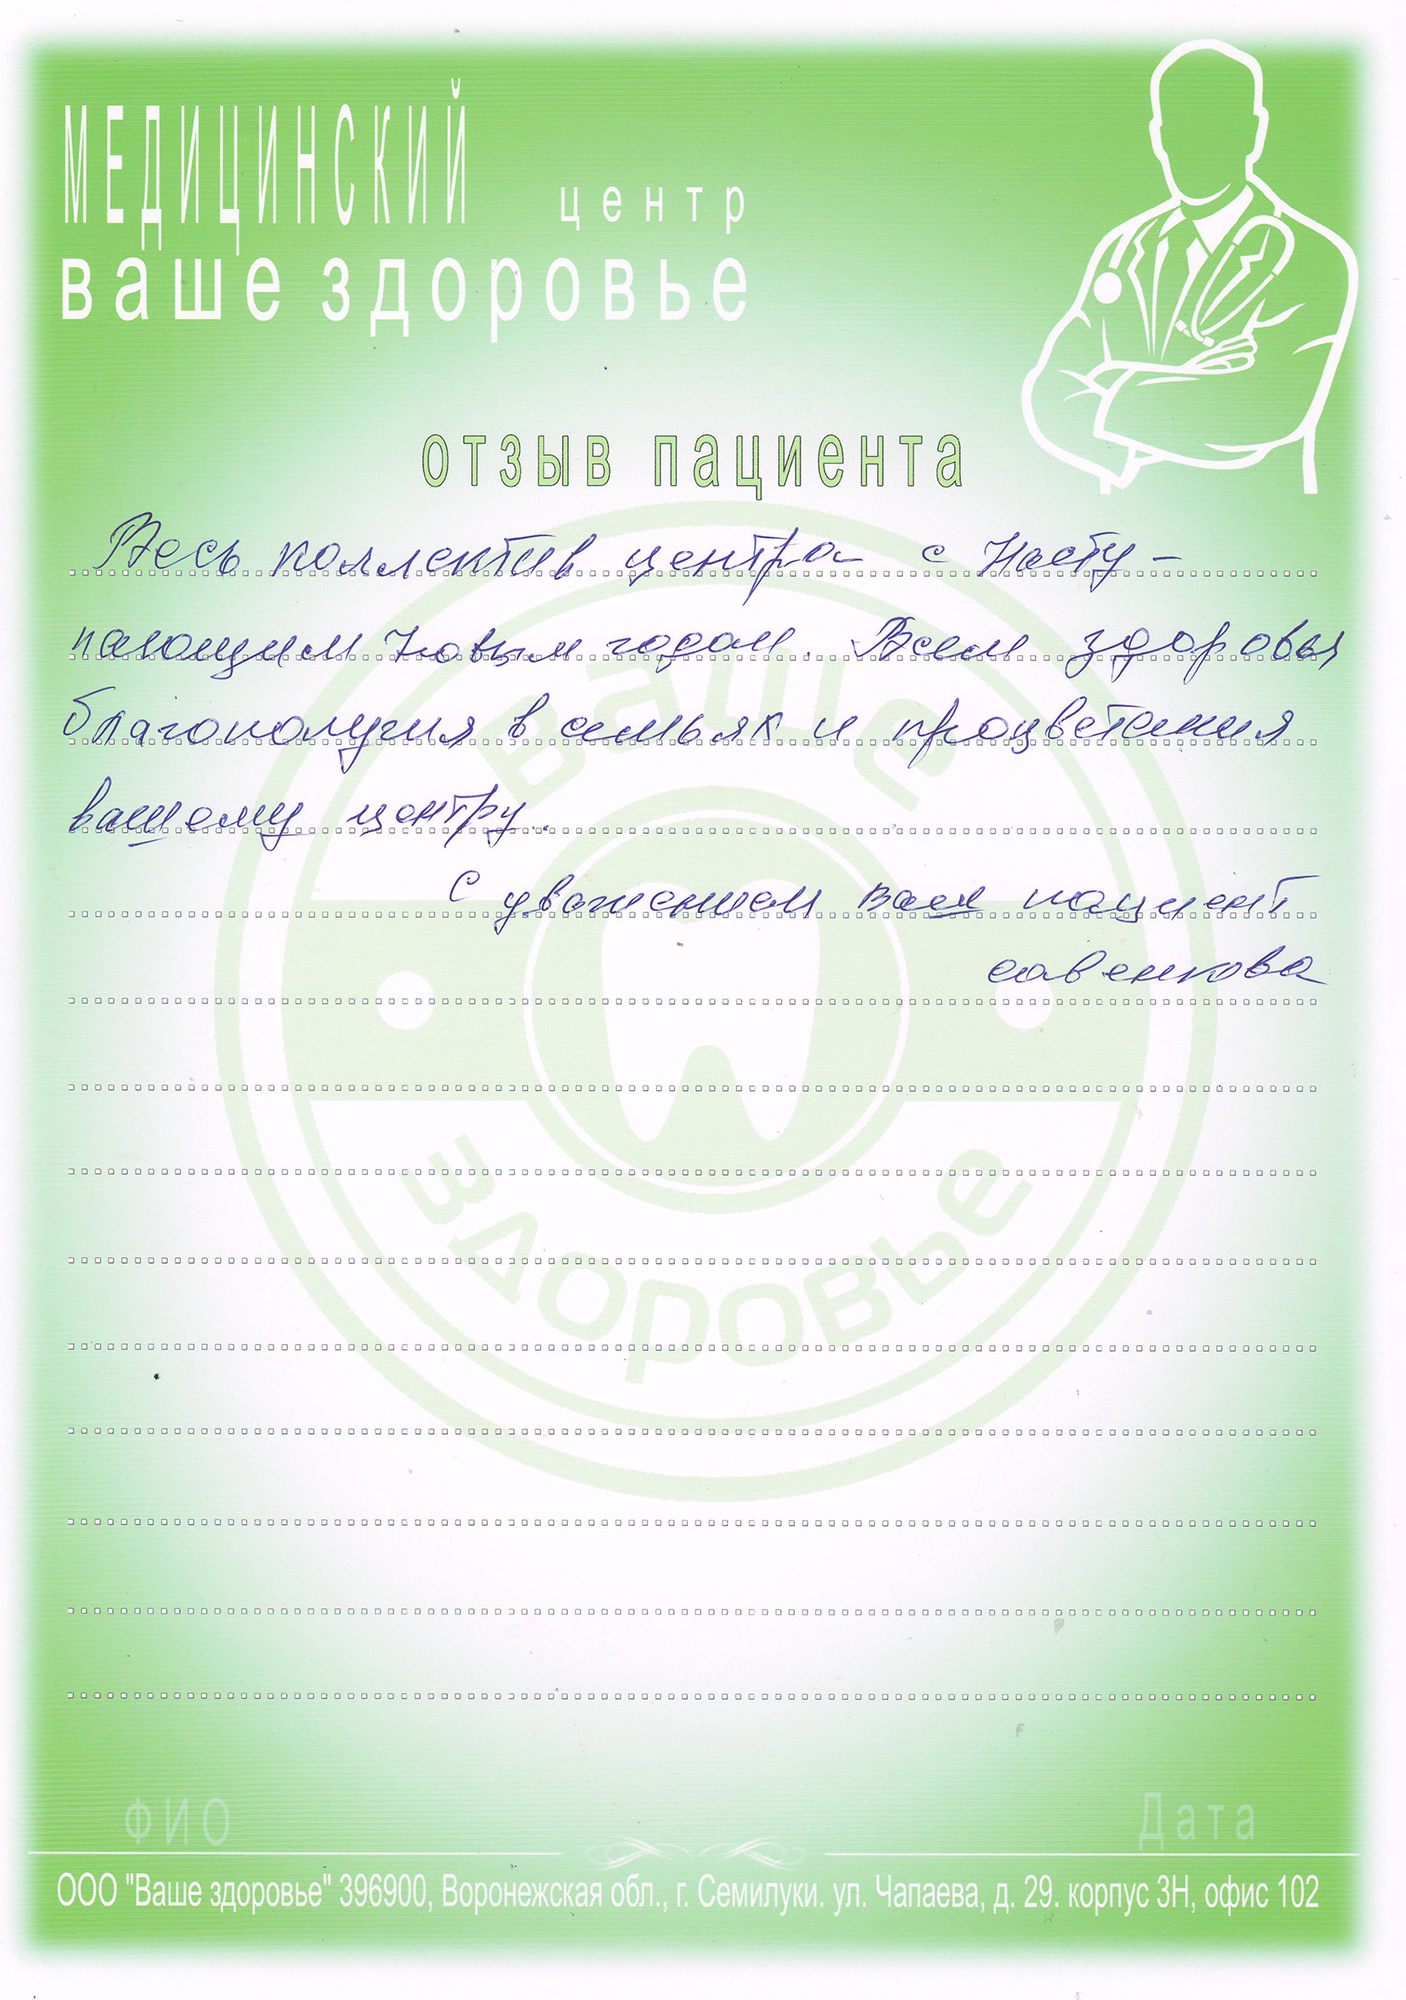 МЕДИЦИНСКИЙ центр
ваше здоровье
отзыв пациента
Весь коллектив центра с Насту-
пающим Новым годом. Всем здоровья
благополучия в семьях и процветания
вашему центру.
С уважением ваш пациент
савенкова
ваше
здоровье
ФИО
Дата
ООО "Ваше здоровье" 396900, Воронежская обл., г. Семилуки. ул. Чапаева, д. 29. корпус 3Н, офис 102